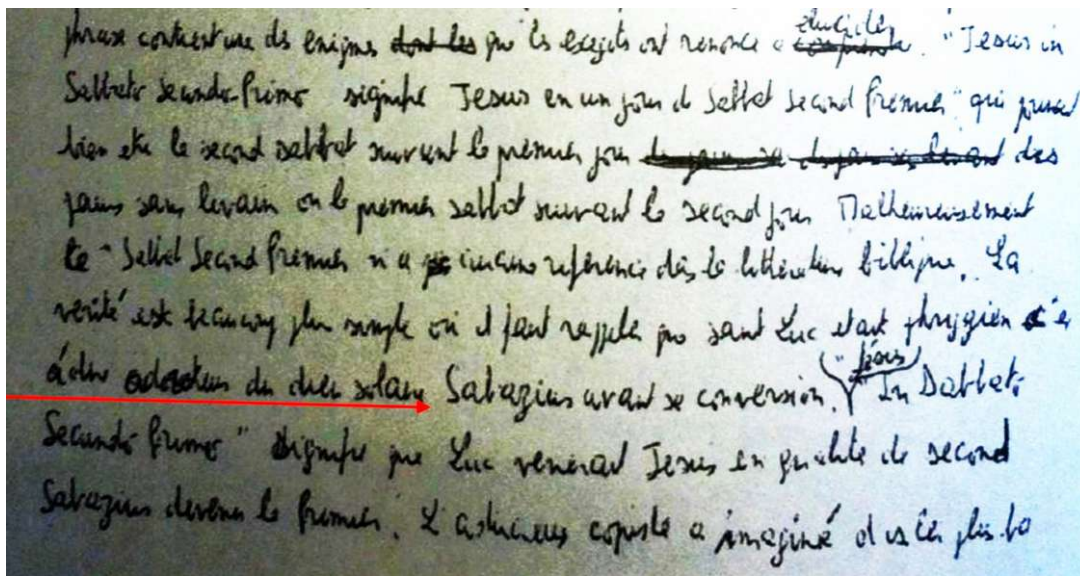 phrase contient une des enigmes dont les que les exegetes ont renoncé a élucider "Jesus in
Sabbato Secundo-Primo signifie Jesus en un jour de Sabbat Second Premier" qui pourrait
bien etre le second sabbat suivant le premier jour des
pains sans levain ou le premier sabbat suivant le second jour Malheureusement
le "Sabbat Second Premier n'a aucune reference dans la littérature biblique. La
verité est beaucoup plus simple si il faut rappeler que saint Luc etait phrygien c'e
à dire adorateur du dieu solaire Sabazius avant sa conversion. " In Sabbato
Secundo Primo" signifie que Luc venerait Jesus en qualité de second
Sabazius devenu le Premier. L'astucieux copiste a imaginé d